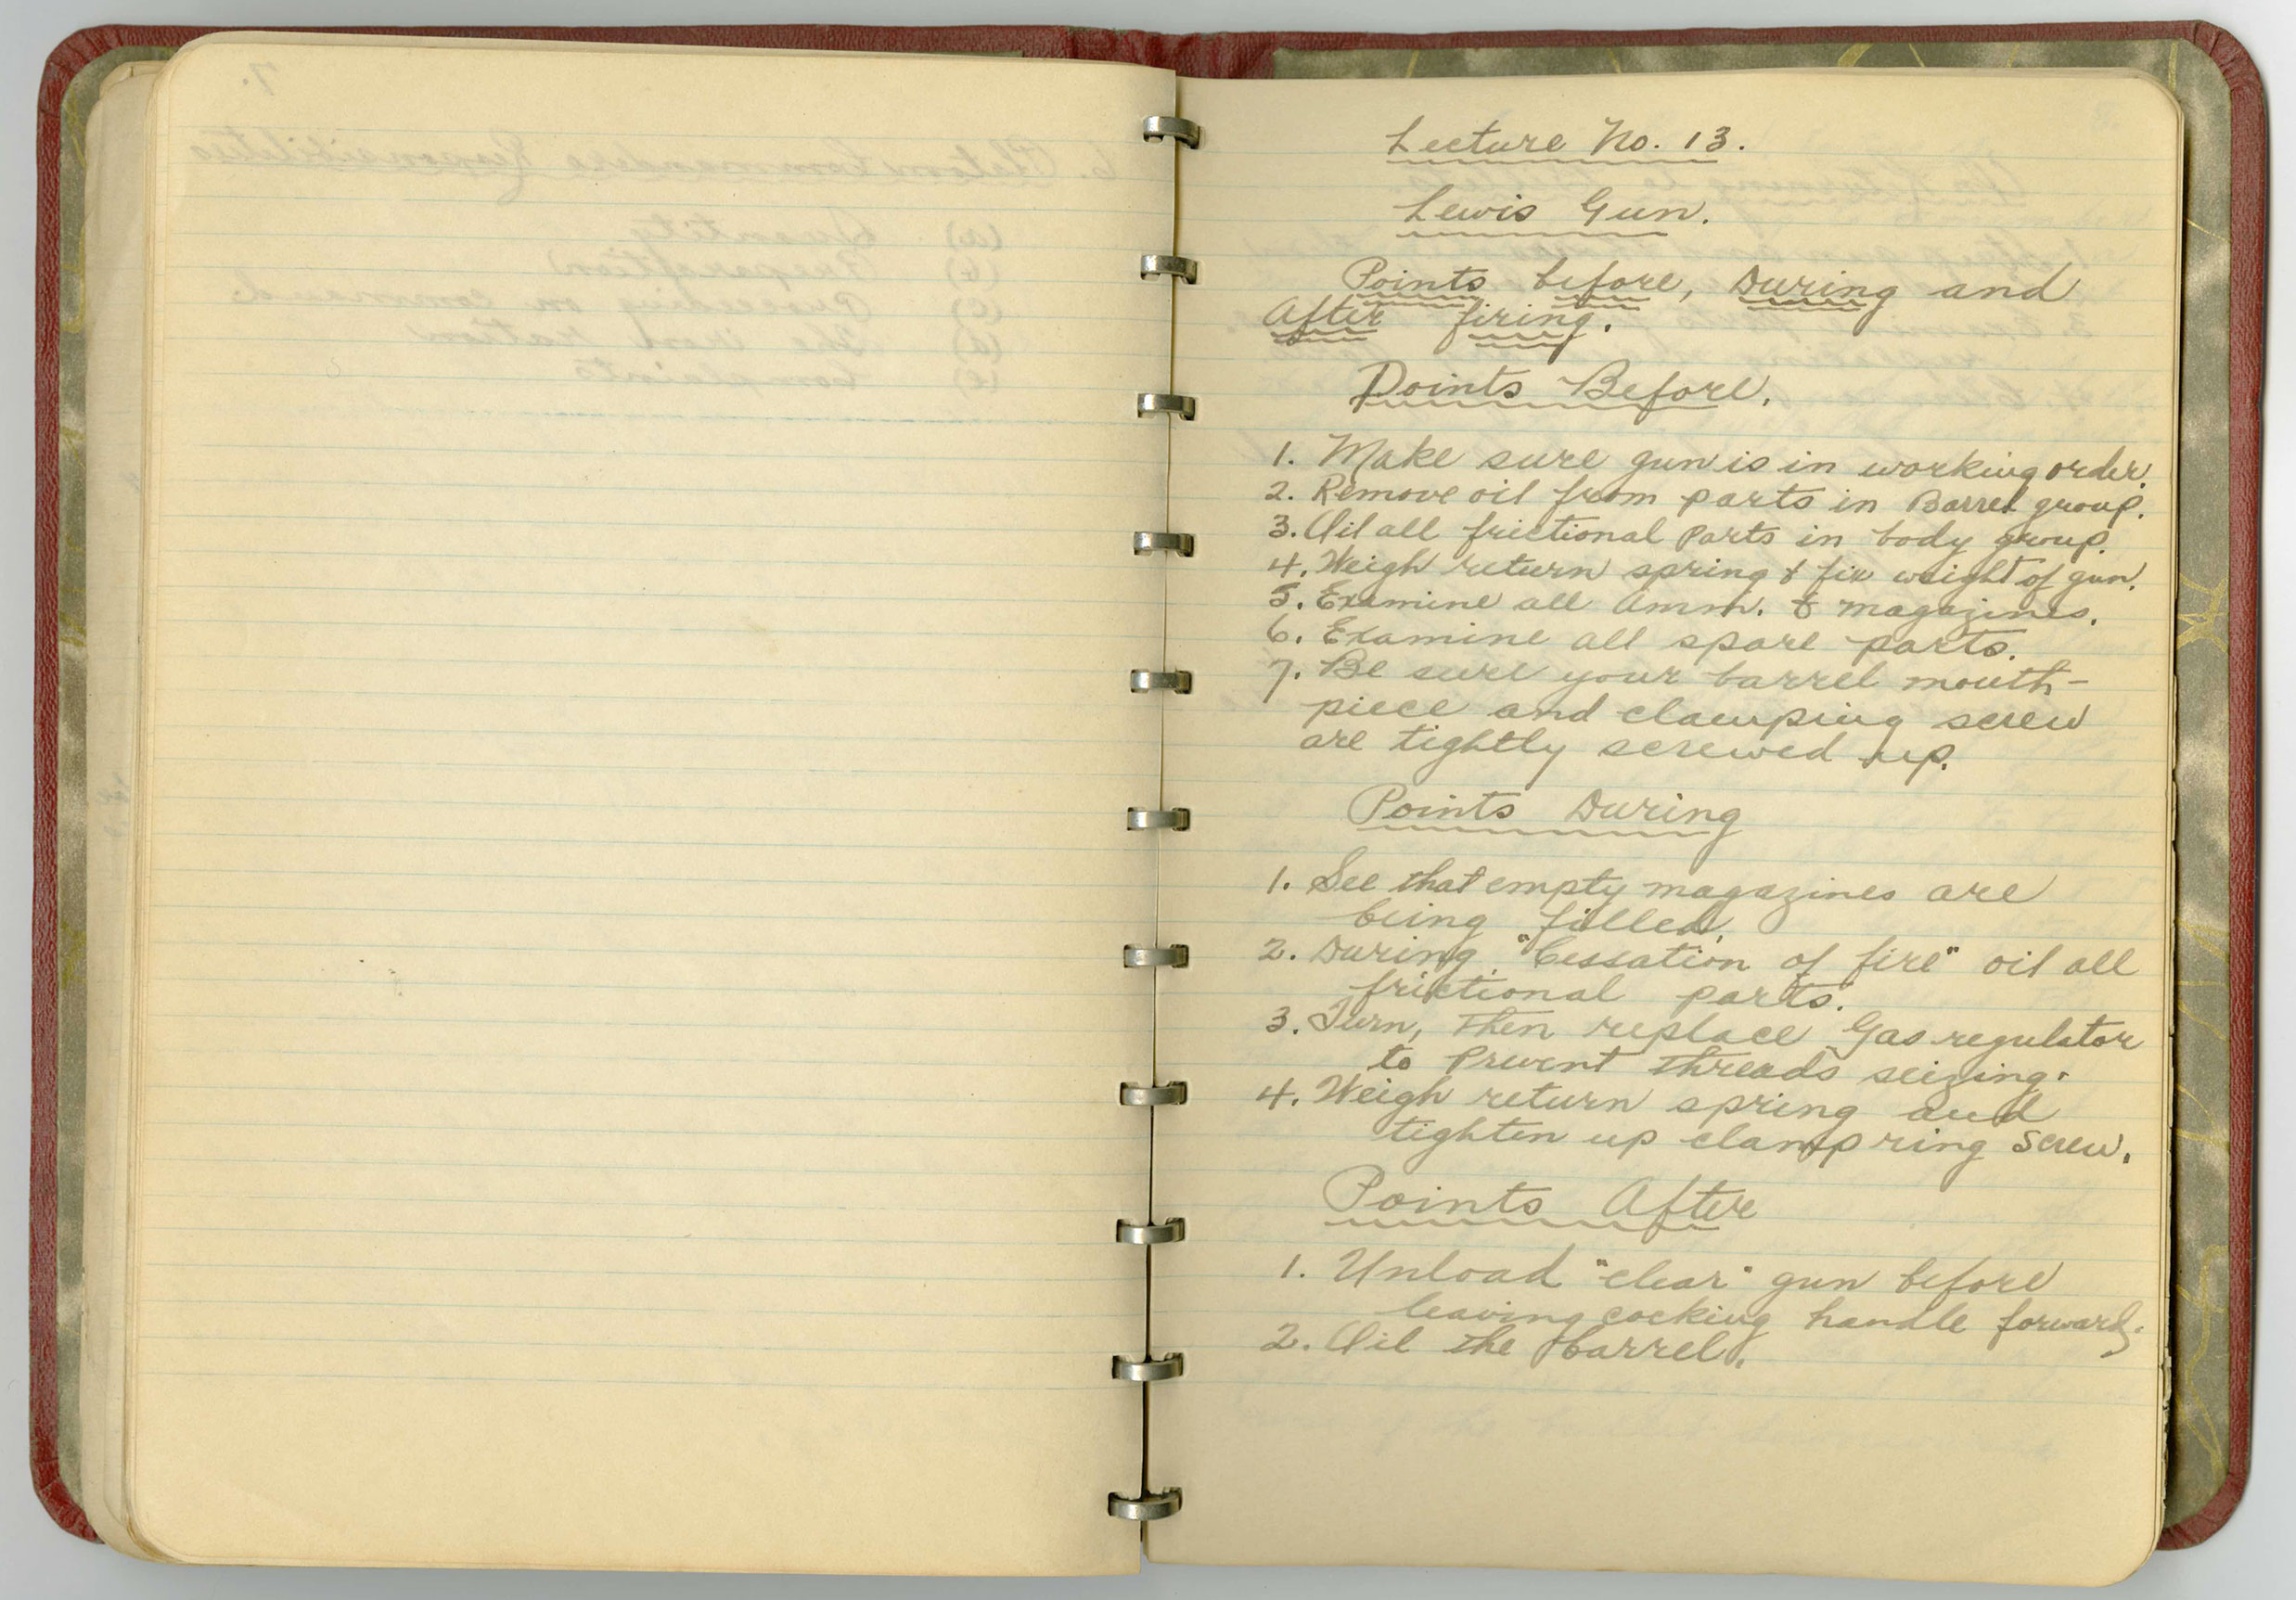 Lecture No. 13.
Lewis Gun.
Points before, During and
After firing.
Points Before.
1. Make sure gun is in working order.
2. Remove oil from parts in Barrel group.
3. Oil all frictional Parts in body group.
4. Weigh return spring & fix weight of gun.
5. Examine all Amm. & magazines.
6. Examine all spare parts.
7. Be sure your barrel mouth-
piece and clamping screw
are tightly screwed up.
Points During
1. See that empty magazines are
being filled.
2. During "Cessation of fire" oil all
frictional parts.
3. Turn, then replace Gas regulator
to Prevent threads seizing.
4. Weigh return spring and
tighten up clamp ring screw.
Points After
1. Unload "clear" gun before
leaving cocking handle forward.
2. Oil the barrel.
7.
6. Platoon Commanders Responsibilities
(a) Quantity
(b) Preparation
(c) Proceeding on command.
(d) The iron ration
(e) Complaints